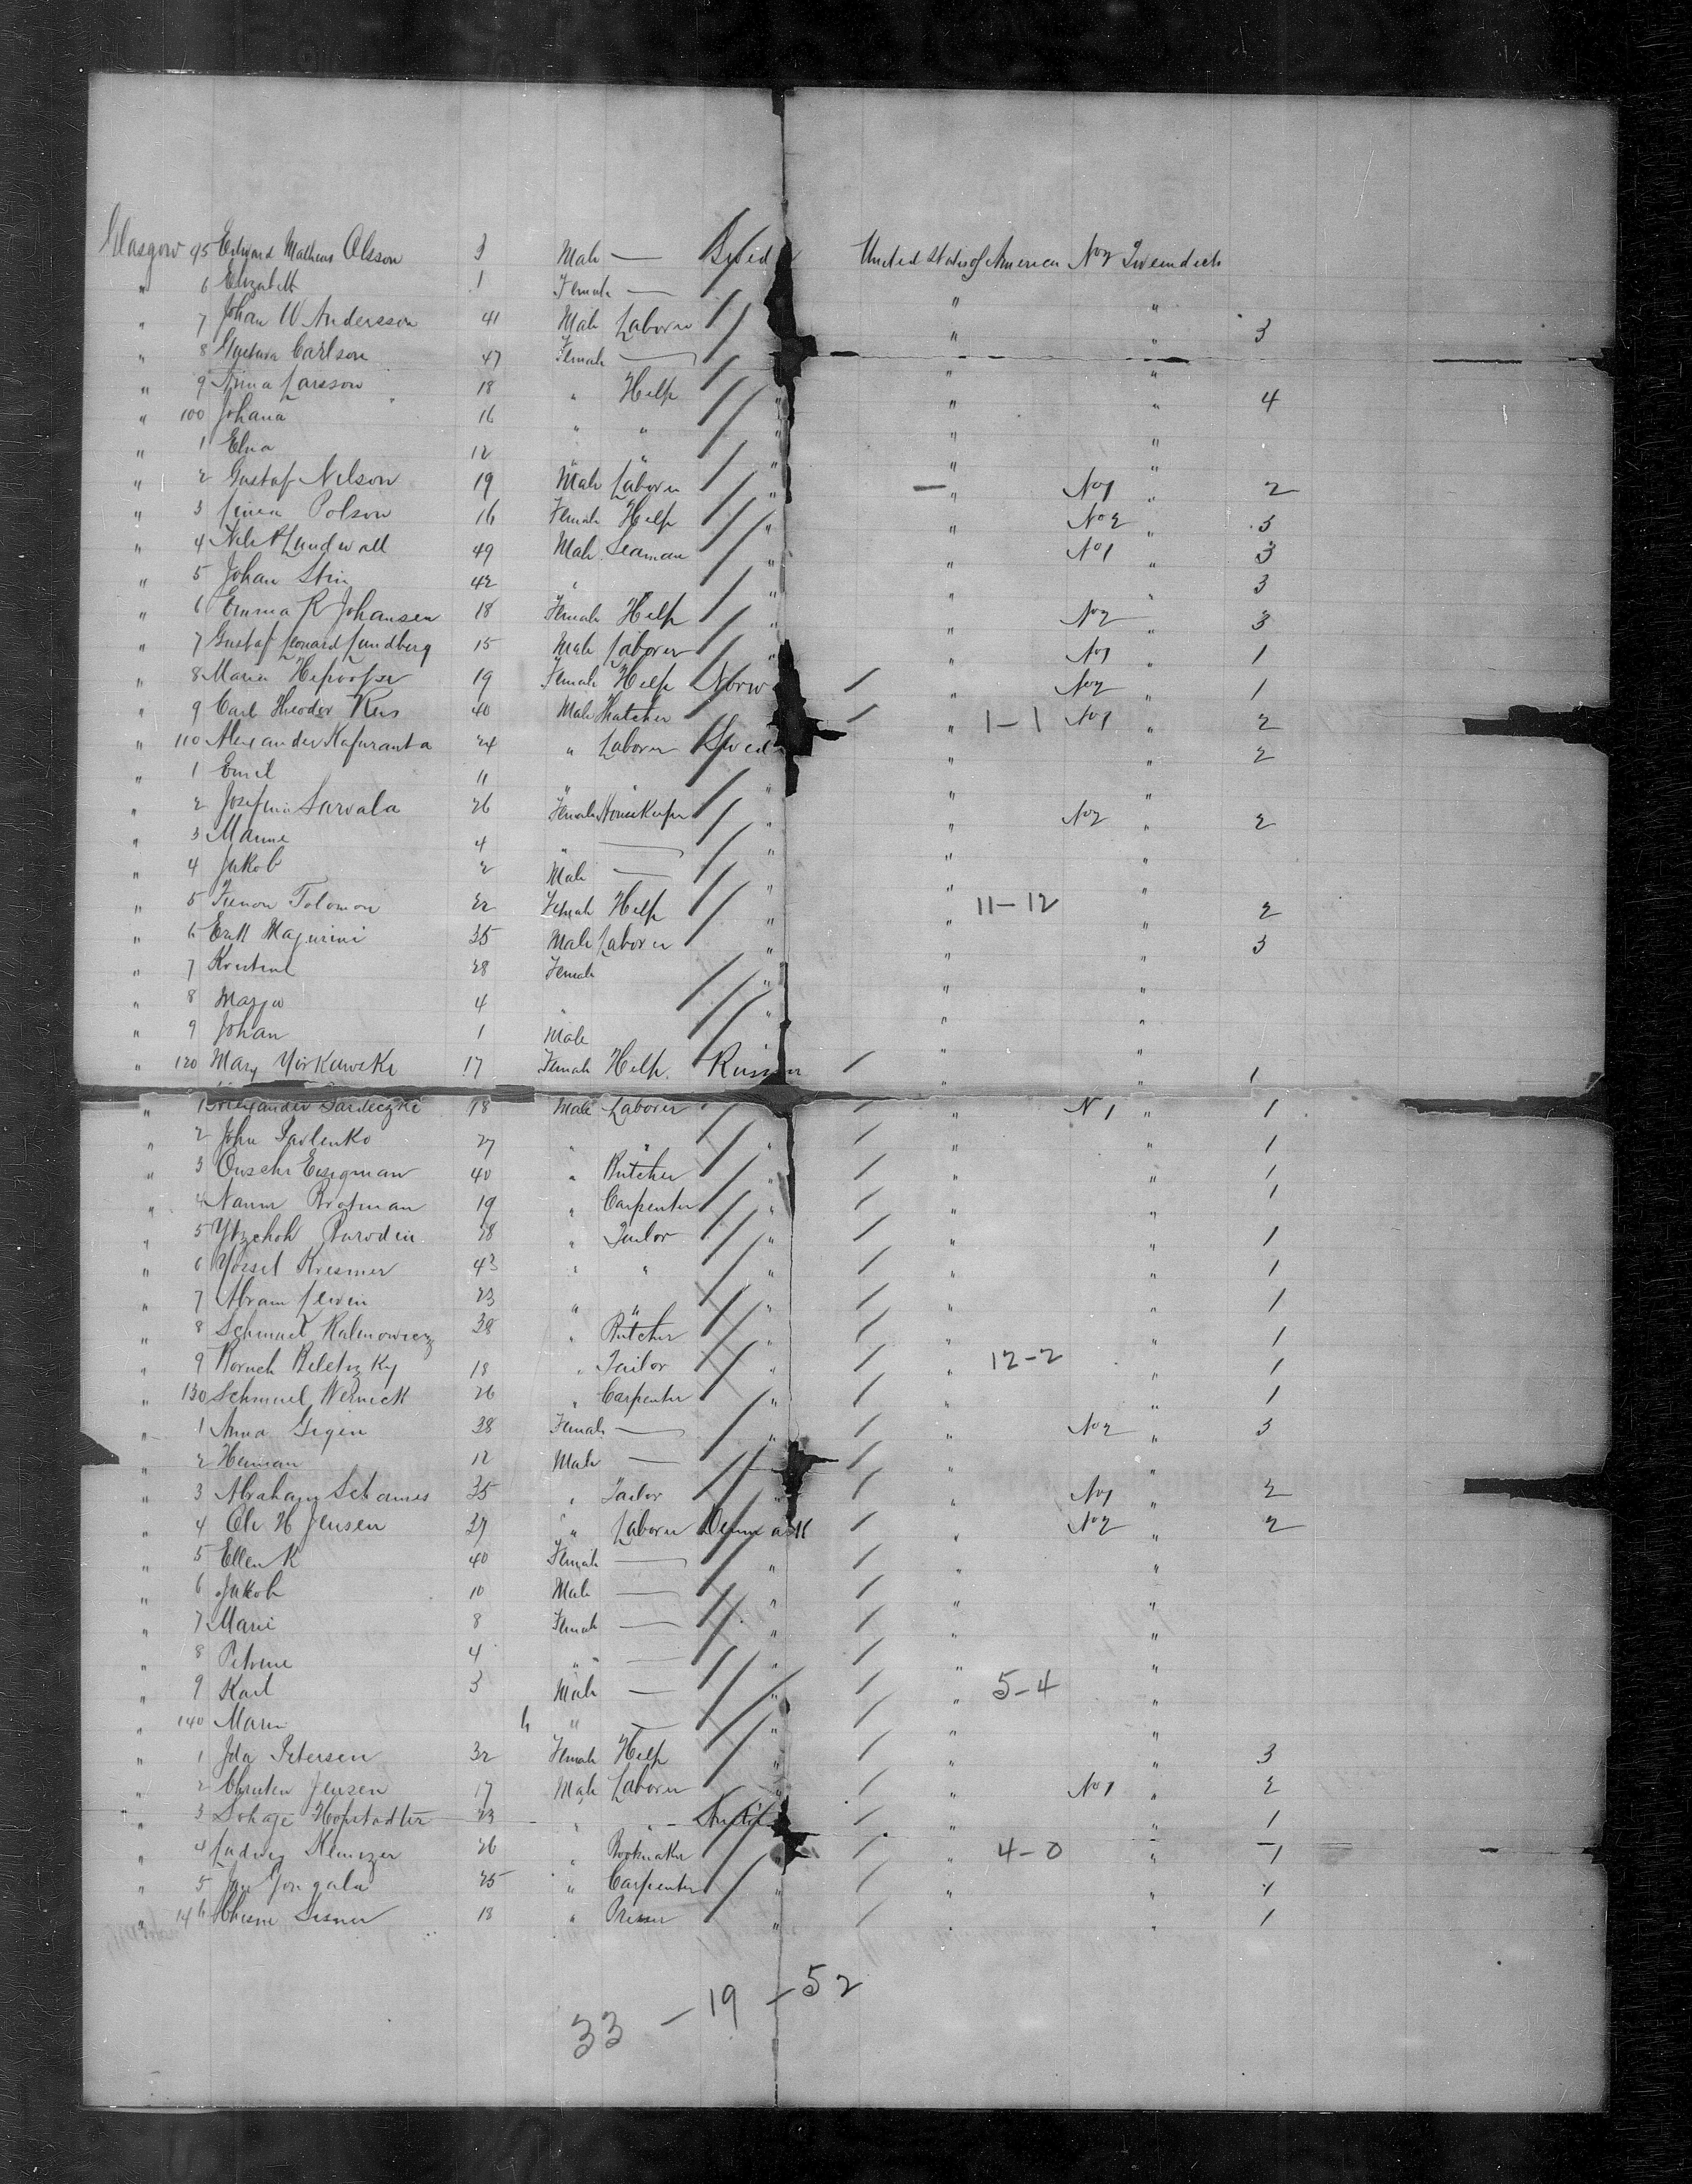 Glasgow 95 Edward Matheus Olsson 3 Male — Swed United States of America No 2 Tweendeck
" 6 Elizabett 1 Female — " "
" 7 Johan W Andersson 41 Male Laborer " " 3
" 8 Carlson 47 Female — " "
" 9 Anna Larsson 18 " Help " " " 4
" 100 Johana 16 " " " " "
" 1 Elna 12 " " " " "
" 2 Gustaf Nelson 19 Male Laborer " " No 1 " 2
" 3 Polson 16 Female Help " " No 2 " 3
" 4 Lundwall 49 Male Seaman " No 1 " 3
" 5 Johan 42 " " " " 3
" 6 Emma R Johansen 18 Female Help " " No 2 " 3
" 7 Gustaf Leonard Lundberg 15 Male Laborer " " No 1 " 1
" 8 Maria 19 Female Help Norw " No 2 " 1
" 9 Carl Theodor 40 Male Thatcher " 1-1 No 1 " 2
" 110 Alexander Kafuranta 24 " Laborer Swed " " 2
" 1 Emil 11 " " " "
" 2 Josefina Sarvala 26 Female HouseKeeper " " No 2 " 2
" 3 4 " — " " "
" 4 Jakob 2 Male — " " "
" 5 Tolomon 22 Female Help " " 11-12 " 2
" 6 Majurini 35 Male Laborer " " 3
" 7 28 Female " " "
" 8 4 " " " "
" 9 Johan 1 Male " "
" 120 Mary Yorkawski 17 Female Help Russia " " 1
" 1 Alexander 18 Male Laborer " N 1 " 1
" 2 John Pavlenko 27 " " " " " 1
" 3 40 " Butcher " " " 1
" 4 Brotman 19 " Carpenter " " " 1
" 5 28 " Tailor " " " 1
" 6 Kresmer 43 " " " " " 1
" 7 Abram Lewin 23 " " " " " 1
" 8 Schmuel Kalmowicz 38 " Butcher " " 1
" 9 Boruch Beletzky 18 " Tailor " 12-2 " 1
" 130 Schmuel Wernick 26 " Carpenter " " " 1
" 1 Anna Gigen 38 Female — " " No 2 " 3
" 2 Herman 12 Male — " "
" 3 Abraham Schames 35 " Tailor " " No 1 " 2
" 4 Chr H Jensen 39 " Laborer Denmark " No 2 " 2
" 5 Ellen K 40 Female — " " "
" 6 Jakob 10 Male — " " "
" 7 Marie 8 Female — " " "
" 8 Petrine 4 " — " " "
" 9 Karl 3 Male — " " 5-4 "
" 140 " — " " "
" 1 Ida Petersen 32 Female Help " " " 3
" 2 Jensen 17 Male Laborer " " No 1 " 2
" 3 Hopstadter 23 " " " " 1
" 4 Ludwig 26 " " " 4-0 " 1
" 5 Jan 25 " Carpenter " " " 1
" 146 18 " Presser " " " 1
33 - 19 - 52